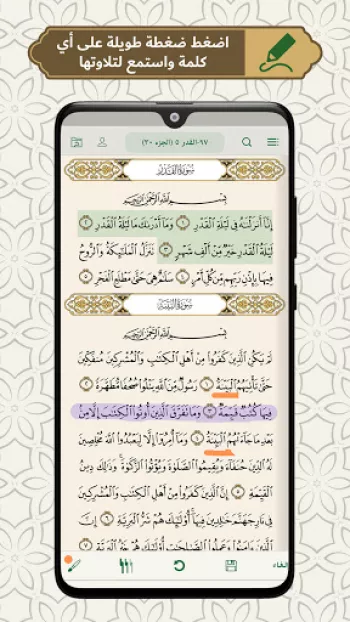 اضغط ضغطة طويلة على أي
كلمة واستمع لتلاوتها
٩٧-القدر ٥ (الجزء ٣٠)
سُورَةُ القَدْرِ
بِسْمِ اللَّهِ الرَّحْمَٰنِ الرَّحِيمِ
إِنَّا أَنزَلْنَٰهُ فِي لَيْلَةِ الْقَدْرِ ١ وَمَا أَدْرَىٰكَ مَا لَيْلَةُ الْقَدْرِ ٢
لَيْلَةُ الْقَدْرِ خَيْرٌ مِّنْ أَلْفِ شَهْرٍ ٣ تَنَزَّلُ الْمَلَٰٓئِكَةُ وَالرُّوحُ
فِيهَا بِإِذْنِ رَبِّهِم مِّن كُلِّ أَمْرٍ ٤ سَلَٰمٌ هِيَ حَتَّىٰ مَطْلَعِ الْفَجْرِ ٥
سُورَةُ البَيِّنَةِ
بِسْمِ اللَّهِ الرَّحْمَٰنِ الرَّحِيمِ
لَمْ يَكُنِ الَّذِينَ كَفَرُوا مِنْ أَهْلِ الْكِتَٰبِ وَالْمُشْرِكِينَ مُنفَكِّينَ
حَتَّىٰ تَأْتِيَهُمُ الْبَيِّنَةُ ١ رَسُولٌ مِّنَ اللَّهِ يَتْلُوا صُحُفًا مُّطَهَّرَةً ٢
فِيهَا كُتُبٌ قَيِّمَةٌ ٣ وَمَا تَفَرَّقَ الَّذِينَ أُوتُوا الْكِتَٰبَ إِلَّا مِن
بَعْدِ مَا جَاءَتْهُمُ الْبَيِّنَةُ ٤ وَمَا أُمِرُوا إِلَّا لِيَعْبُدُوا اللَّهَ مُخْلِصِينَ
لَهُ الدِّينَ حُنَفَاءَ وَيُقِيمُوا الصَّلَوٰةَ وَيُؤْتُوا الزَّكَوٰةَ وَذَٰلِكَ دِينُ
الْقَيِّمَةِ ٥ إِنَّ الَّذِينَ كَفَرُوا مِنْ أَهْلِ الْكِتَٰبِ وَالْمُشْرِكِينَ
فِي نَارِ جَهَنَّمَ خَٰلِدِينَ فِيهَا أُولَٰئِكَ هُمْ شَرُّ الْبَرِيَّةِ ٦ إِنَّ
الَّذِينَ ءَامَنُوا وَعَمِلُوا الصَّٰلِحَٰتِ أُولَٰئِكَ هُمْ خَيْرُ الْبَرِيَّةِ ٧
الغاء